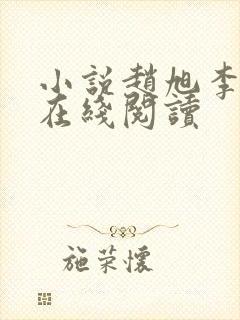 小説趙旭李
在綫閱讀
施荣懷